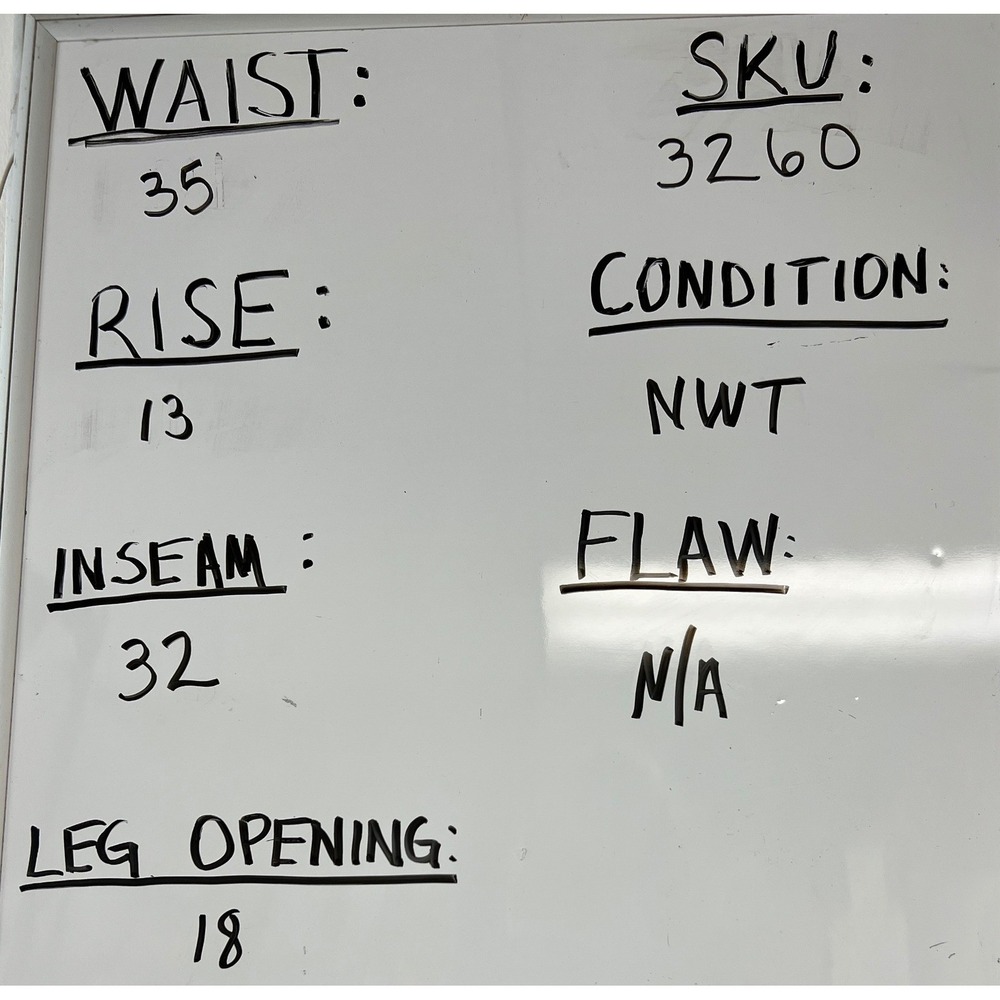 WAIST:
35
RISE:
13
INSEAM:
32
LEG OPENING:
18
SKU:
3260
CONDITION:
NWT
FLAW:
N/A